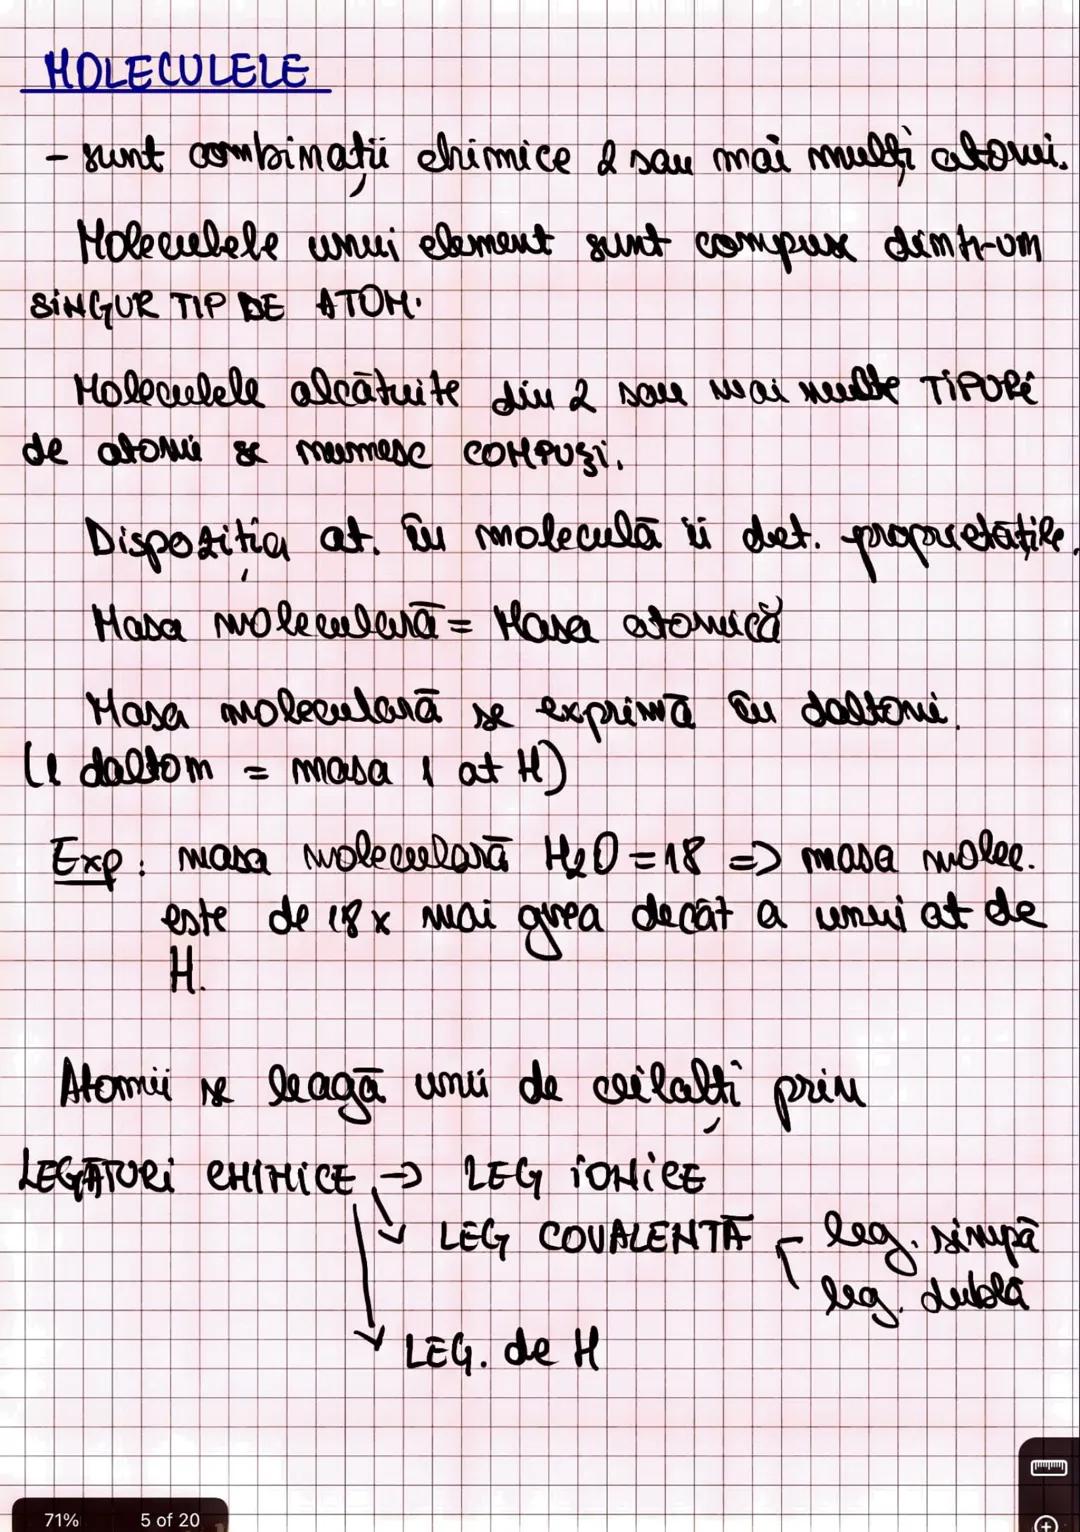 MOLECULELE
- sunt combinații chimice 2 sau mai mulți atomi.
Moleculele unui element sunt compuse dintr-un
SINGUR TIP DE ATOM.
Moleculele alcătuite din 2 sau mai multe TIPURI
de atomi se numesc COMPUȘI.
Dispoziția at. în moleculă îi det. proprietățile.
Masa moleculară = Masa atomică
Masa moleculară se exprimă în daltoni.
(1 dalton = masa 1 at H)
Exp: masa moleculară H₂O = 18 => masa molec.
este de 18x mai grea decât a unui at de
H.
Atomii se leagă unii de ceilalți prin
LEGĂTURI CHIMICE → LEG IONICE
LEG COVALENTĂ leg. simpă
leg. dublă
LEG. de H
71% 5 of 20